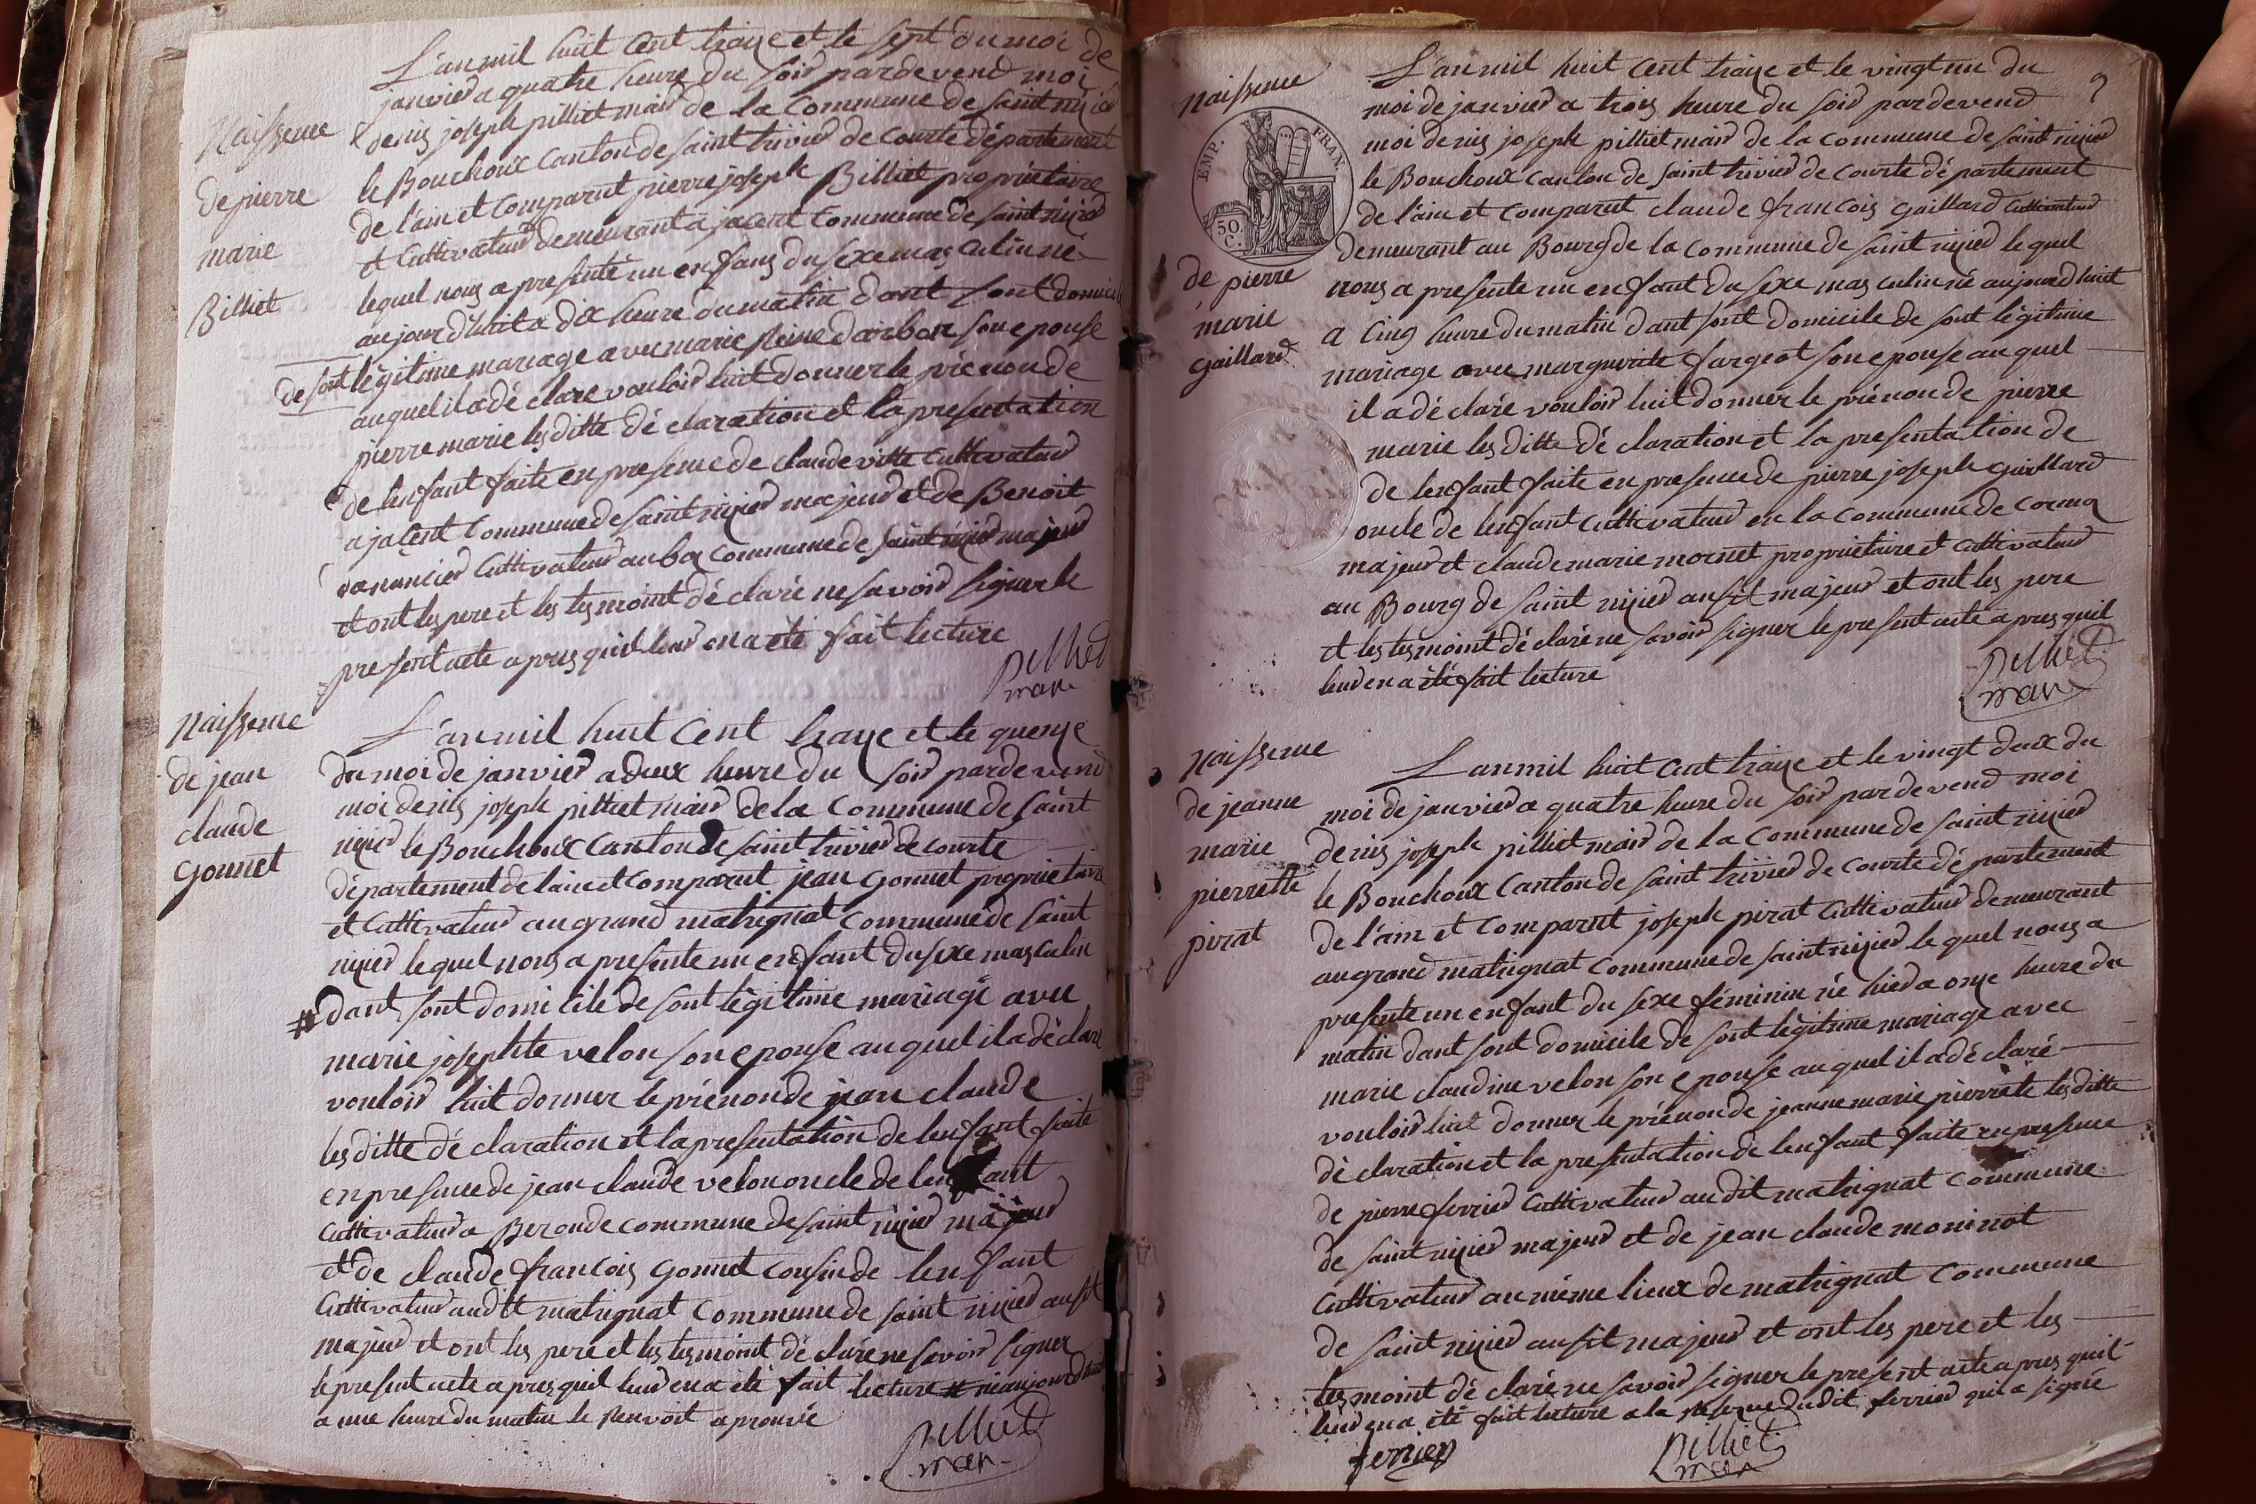 Naissence
de pierre
marie
Billiet
L'an mil huit cent traize et le sept du moi de
janvier a quatre heure du soir pardevend moi
denis joseph pilliet mair de la commune de saint nizier
le Bouchoux canton de saint trivier de courte département
de l'ain et comparut pierre joseph Billiet propriétaire
et cultivateur demeurant a jacent commune de saint nizier
lequel nous a presenté un enfans du sexe masculin né
aujourd'huit a dix heure du matin dant sont domicile
de sont légitime mariage avec marie Reine darbon son epouse
auquel il a dé claré vouloir luit donner le prénon de
pierre marie les ditte dé claration et la presentation
de lenfant faite en presence de claude vitte cultivateur
a jacent commune de saint nizier majeur et de Benoit
cultivateur au commune de saint nizier majeur
et ont les pere et les tesmoint dé claré ne savoir signer le
present acte apres quil leur en a eté fait lecture
pilliet
mair
Naissence
de jean
claude
gonnet
L'an mil huit cent traize et le quenze
du moi de janvier a deux heure du soir pardevend
moi denis joseph pilliet mair de la commune de saint
nizier le Bouchoux canton de saint trivier de courte
département de lain et comparut jean gonnet proprietaire
et cultivateur au grand matrignat commune de saint
nizier lequel nous a presente un enfant du sexe masculin
# dant sont domicile de sont légitime mariage avec
marie josephte velon son epouse auquel il a dé claré
vouloir luit donner le prénon de jean claude
les ditte dé claration et la presentation de lenfant faite
en presence de jean claude velon oncle de lenfant
cultivateur a Beronde commune de saint nizier majeur
et de claude francois gonnet cousin de lenfant
cultivateur audit matrignat commune de saint nizier ausit
majeur et ont les pere et les tesmoint dé claré ne savoir signer
le present acte apres quil leur en a été fait lecture # né aujourdhuit
a une heure du matin le Renvoit aprouvé
pilliet
mair
2
Naissence
EMP. FRAN.
50
C.
de pierre
marie
gaillard
L'an mil huit cent traize et le vingt un du
moi de janvier a trois heure du soir pardevend
moi denis joseph pilliet mair de la commune de saint nizier
le Bouchoux canton de saint trivier de courte département
de l'ain et comparut claude francois gaillard cultivateur
demeurant au Bourg de la commune de saint nizier lequel
nous a presente un enfant du sexe masculin né aujourdhuit
a cinq heure du matin dant sont domicile de sont légitime
mariage avec margueritte fargeot son epouse auquel
il a dé claré vouloir luit donner le prénon de pierre
marie les ditte dé claration et la presentation de
de lenfant faite en presence de pierre joseph gaillard
oncle de lenfant cultivateur en la commune de cormoz
majeur et claude marie mornet propriétaire et cultivateur
au Bourg de saint nizier ausit majeur et ont les pere
et les tesmoint dé claré ne savoir signer le present acte apres quil
leur en a été fait lecture
pilliet
mair
Naissence
de jeanne
marie
pierrette
pirat
L'an mil huit cent traize et le vingt deux du
moi de janvier a quatre heure du soir pardevend moi
denis joseph pilliet mair de la commune de saint nizier
le Bouchoux canton de saint trivier de courte département
de l'ain et comparut joseph pirat cultivateur demeurant
au grand matrignat commune de saint nizier lequel nous a
presente un enfant du sexe féminin né hier a onze heure du
matin dant sont domicile de sont légitime mariage avec
marie claudine velon son epouse auquel il a dé claré
vouloir luit donner le prénon de jeanne marie pierrette les ditte
dé claration et la presentation de lenfant faite en presence
de pierre ferrier cultivateur audit matrignat commune
de saint nizier majeur et de jean claude moninot
cultivateur au même lieux de matrignat commune
de saint nizier ausit majeur et ont les pere et les
tesmoint dé claré ne savoir signer le present acte apres quil
leur en a été fait lecture a la Reserve dudit ferrier qui a signé
ferrier
pilliet
mair